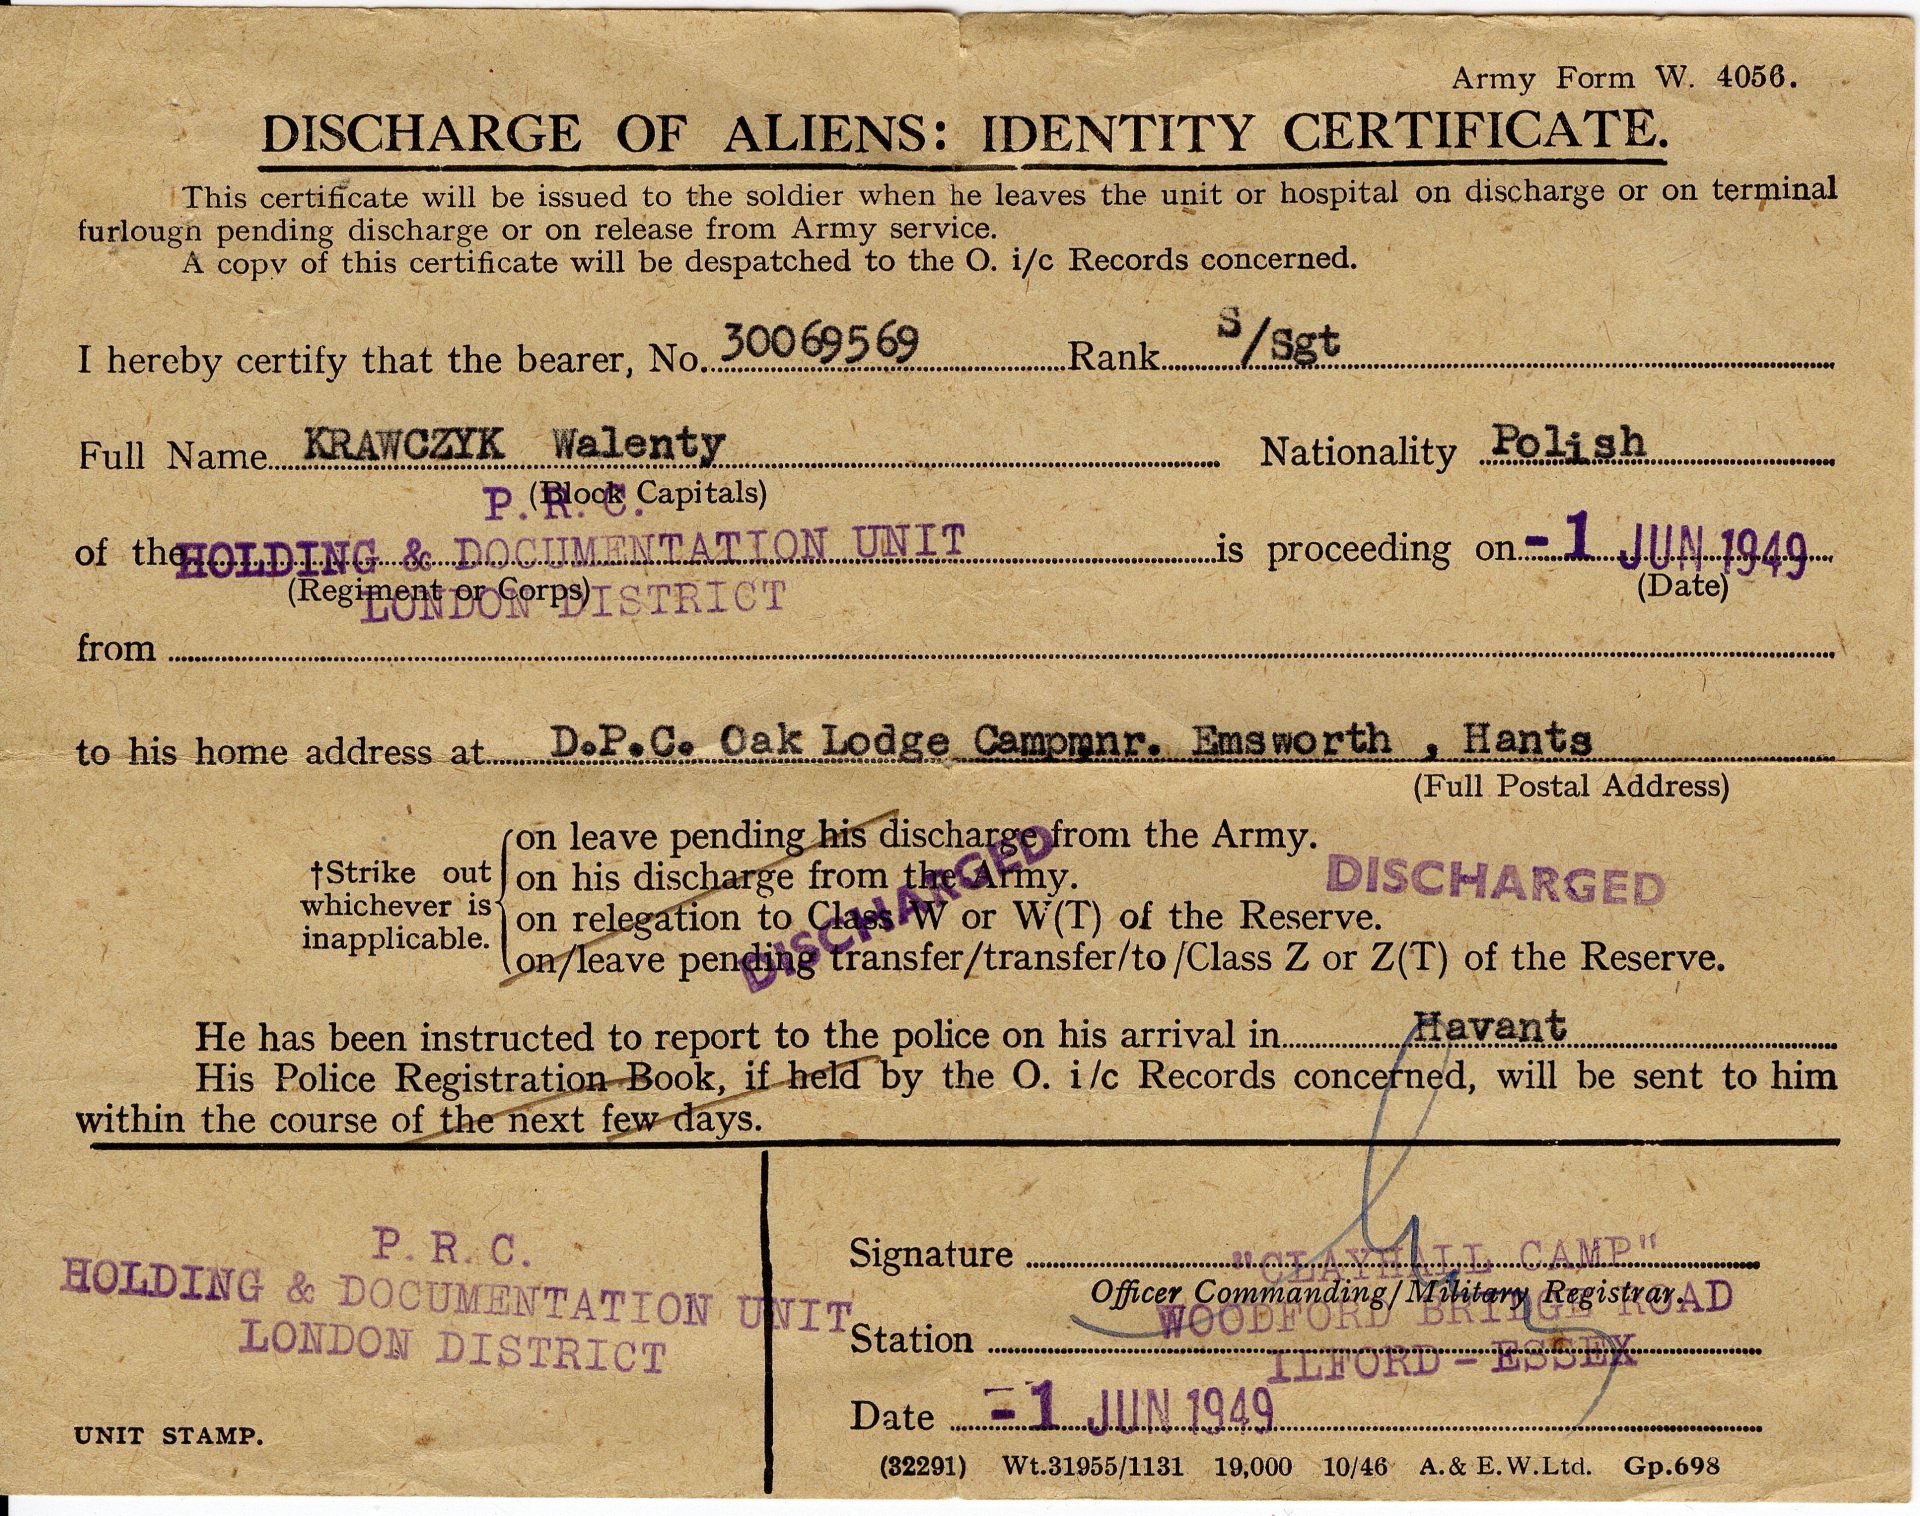 Army Form W. 4056.
DISCHARGE OF ALIENS: IDENTITY CERTIFICATE.
This certificate will be issued to the soldier when he leaves the unit or hospital on discharge or on terminal
furlough pending discharge or on release from Army service.
A copy of this certificate will be despatched to the O. i/c Records concerned.
I hereby certify that the bearer, No. 30069569 Rank S/Sgt
Full Name KRAWCZYK Walenty Nationality Polish
(Block Capitals)
P. R. C.
of the HOLDING & DOCUMENTATION UNIT is proceeding on -1 JUN 1949
(Regiment or Corps) (Date)
LONDON DISTRICT
from
to his home address at D.P.C. Oak Lodge Campmnr. Emsworth , Hants
(Full Postal Address)
†Strike out whichever is inapplicable.
on leave pending his discharge from the Army.
on his discharge from the Army.
on relegation to Class W or W(T) of the Reserve.
on/leave pending transfer/transfer/to/Class Z or Z(T) of the Reserve.
DISCHARGED
DISCHARGED
He has been instructed to report to the police on his arrival in Havant
His Police Registration Book, if held by the O. i/c Records concerned, will be sent to him
within the course of the next few days.
P. R. C.
HOLDING & DOCUMENTATION UNIT
LONDON DISTRICT
UNIT STAMP.
Signature
"CLAYHALL CAMP"
Officer Commanding/Military Registrar.
WOODFORD BRIDGE ROAD
Station
ILFORD - ESSEX
Date -1 JUN 1949
(32291) Wt.31955/1131 19,000 10/46 A.& E.W.Ltd. Gp.698